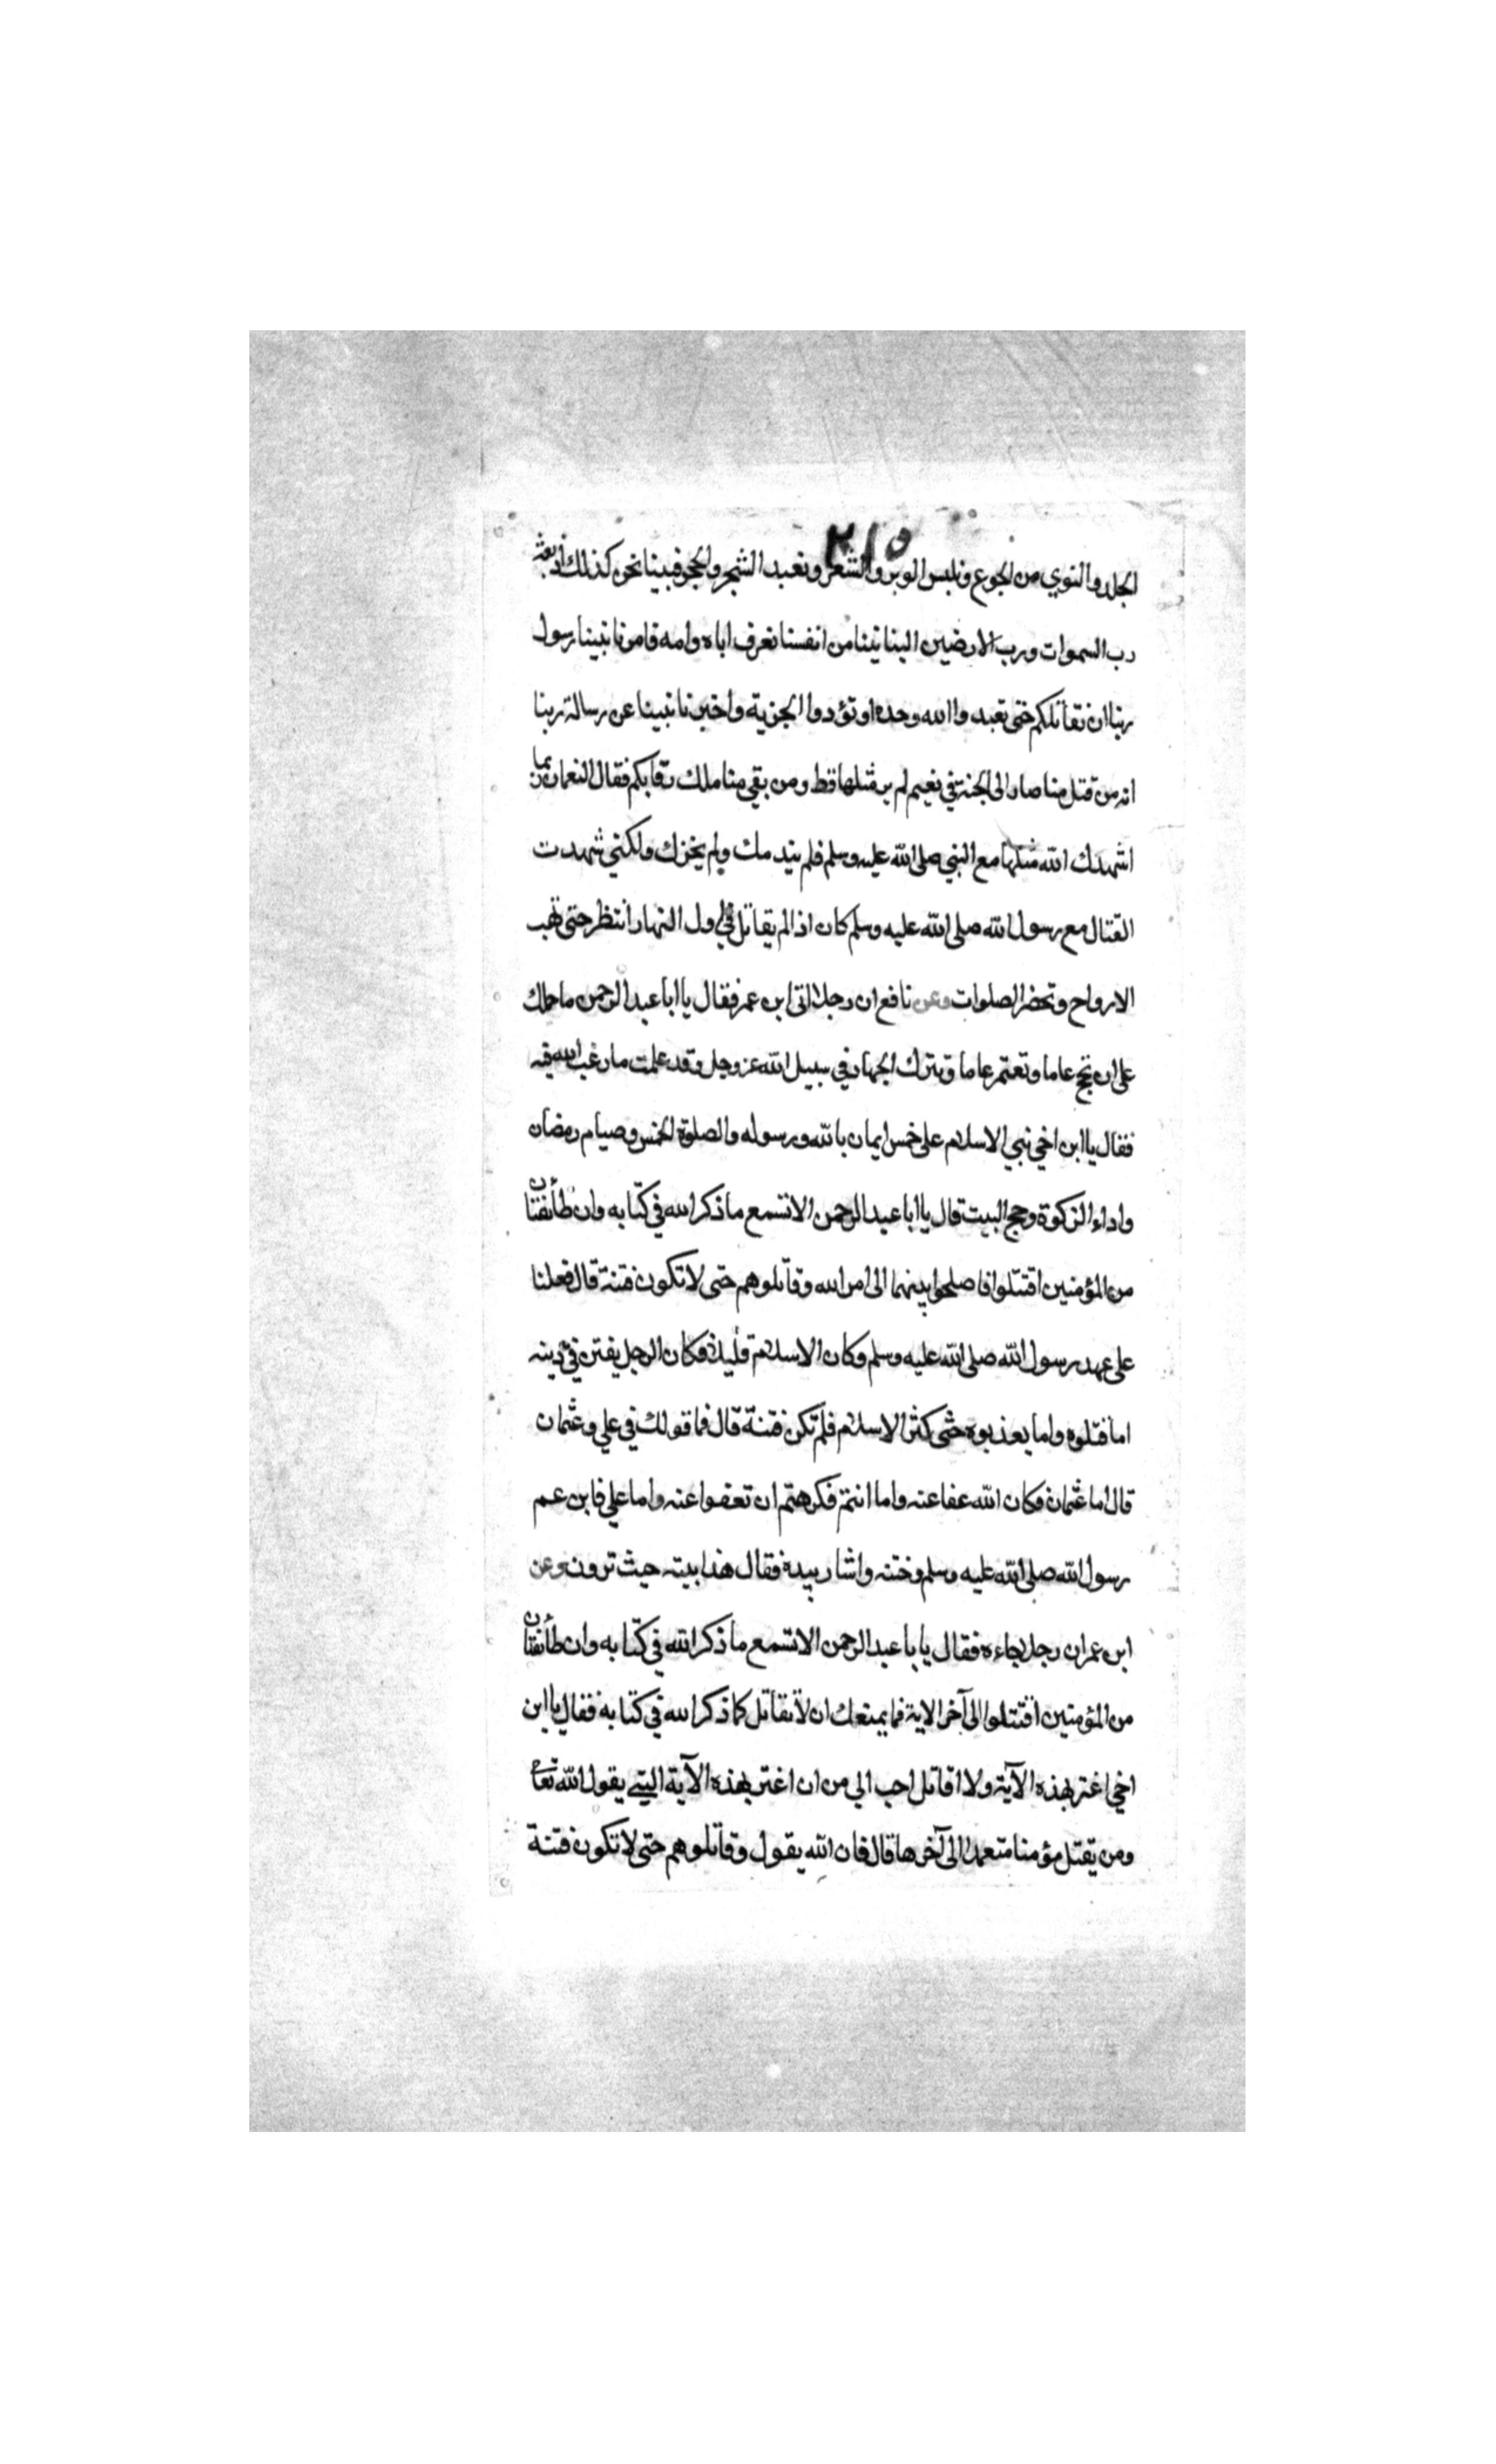 ٢١٥
الجلد والنوي من الجوع ونلبس الوبر والشعر ونعبد الشجر والحجر فبينا نحن كذلك اذ بعث
رب السموات ورب الارضين الينا نبينا من انفسنا نعرف اباه وامه فامرنا نبينا رسول
ربنا ان نقاتلكم حتى تعبدوا الله وحده او تؤدوا الجزية واخبرنا نبينا عن رسالة ربنا
انه من قتل منا صار الى الجنة في نعيم لم ير مثلها قط ومن بقي منا ملك رقابكم فقال النعمان ربما
اشهدك الله مثلها مع النبي صلى الله عليه وسلم فلم يندمك ولم يخزك ولكني شهدت
القتال مع رسول الله صلى الله عليه وسلم كان اذا لم يقاتل في اول النهار انتظر حتى تهب
الارواح وتحضر الصلوات وعن نافع ان رجلا اتى ابن عمر فقال يا ابا عبد الرحمن ما حملك
على ان تحج عاما وتعتمر عاما وتترك الجهاد في سبيل الله عز وجل وقد علمت ما رغب الله فيه
فقال يا ابن اخي نبي الاسلام على خمس ايمان بالله ورسوله والصلوة الخمس وصيام رمضان
واداء الزكوة وحج البيت قال يا ابا عبد الرحمن الا تسمع ما ذكر الله في كتابه وان طائفتان
من المؤمنين اقتتلوا فاصلحوا بينهما الى امر الله وقاتلوهم حتى لا تكون فتنة قال فعلنا
على عهد رسول الله صلى الله عليه وسلم وكان الاسلام قليلا فكان الرجل يفتن في دينه
اما قتلوه واما يعذبوه حتى كثر الاسلام فلم تكن فتنة قال فما قولك في علي وعثمان
قال اما عثمان فكان الله عفا عنه واما انتم فكرهتم ان تعفوا عنه واما علي فابن عم
رسول الله صلى الله عليه وسلم وختنه واشار بيده فقال هذا بيته حيث ترون وعن
ابن عمر ان رجلا جاءه فقال يا با عبد الرحمن الا تسمع ما ذكر الله في كتابه وان طائفتان
من المؤمنين اقتتلوا الى آخر الاية فما يمنعك ان لا تقاتل كما ذكر الله في كتابه فقال يا ابن
اخي اغتر بهذه الآية ولا اقاتل احب الي من ان اغتر بهذه الآية التي يقول الله تعا
ومن يقتل مؤمنا متعمدا الى آخرها قال فان الله يقول وقاتلوهم حتى لا تكون فتنة